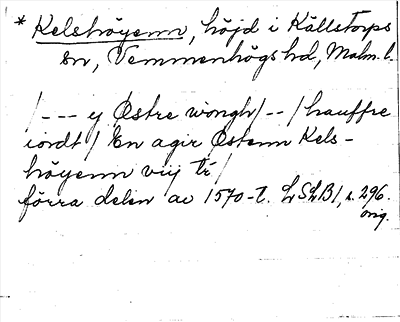 * Kelshöyenn, höjd i Källstorps
sn, Vemmenhögs hd, Malm. l.
/--- y Østre wongh/--/hauffre
iordt/ En agir Østenn Kels-
höyenn vij tr/
förra delen av 1570-t. LSLB1, s. 296.
orig.